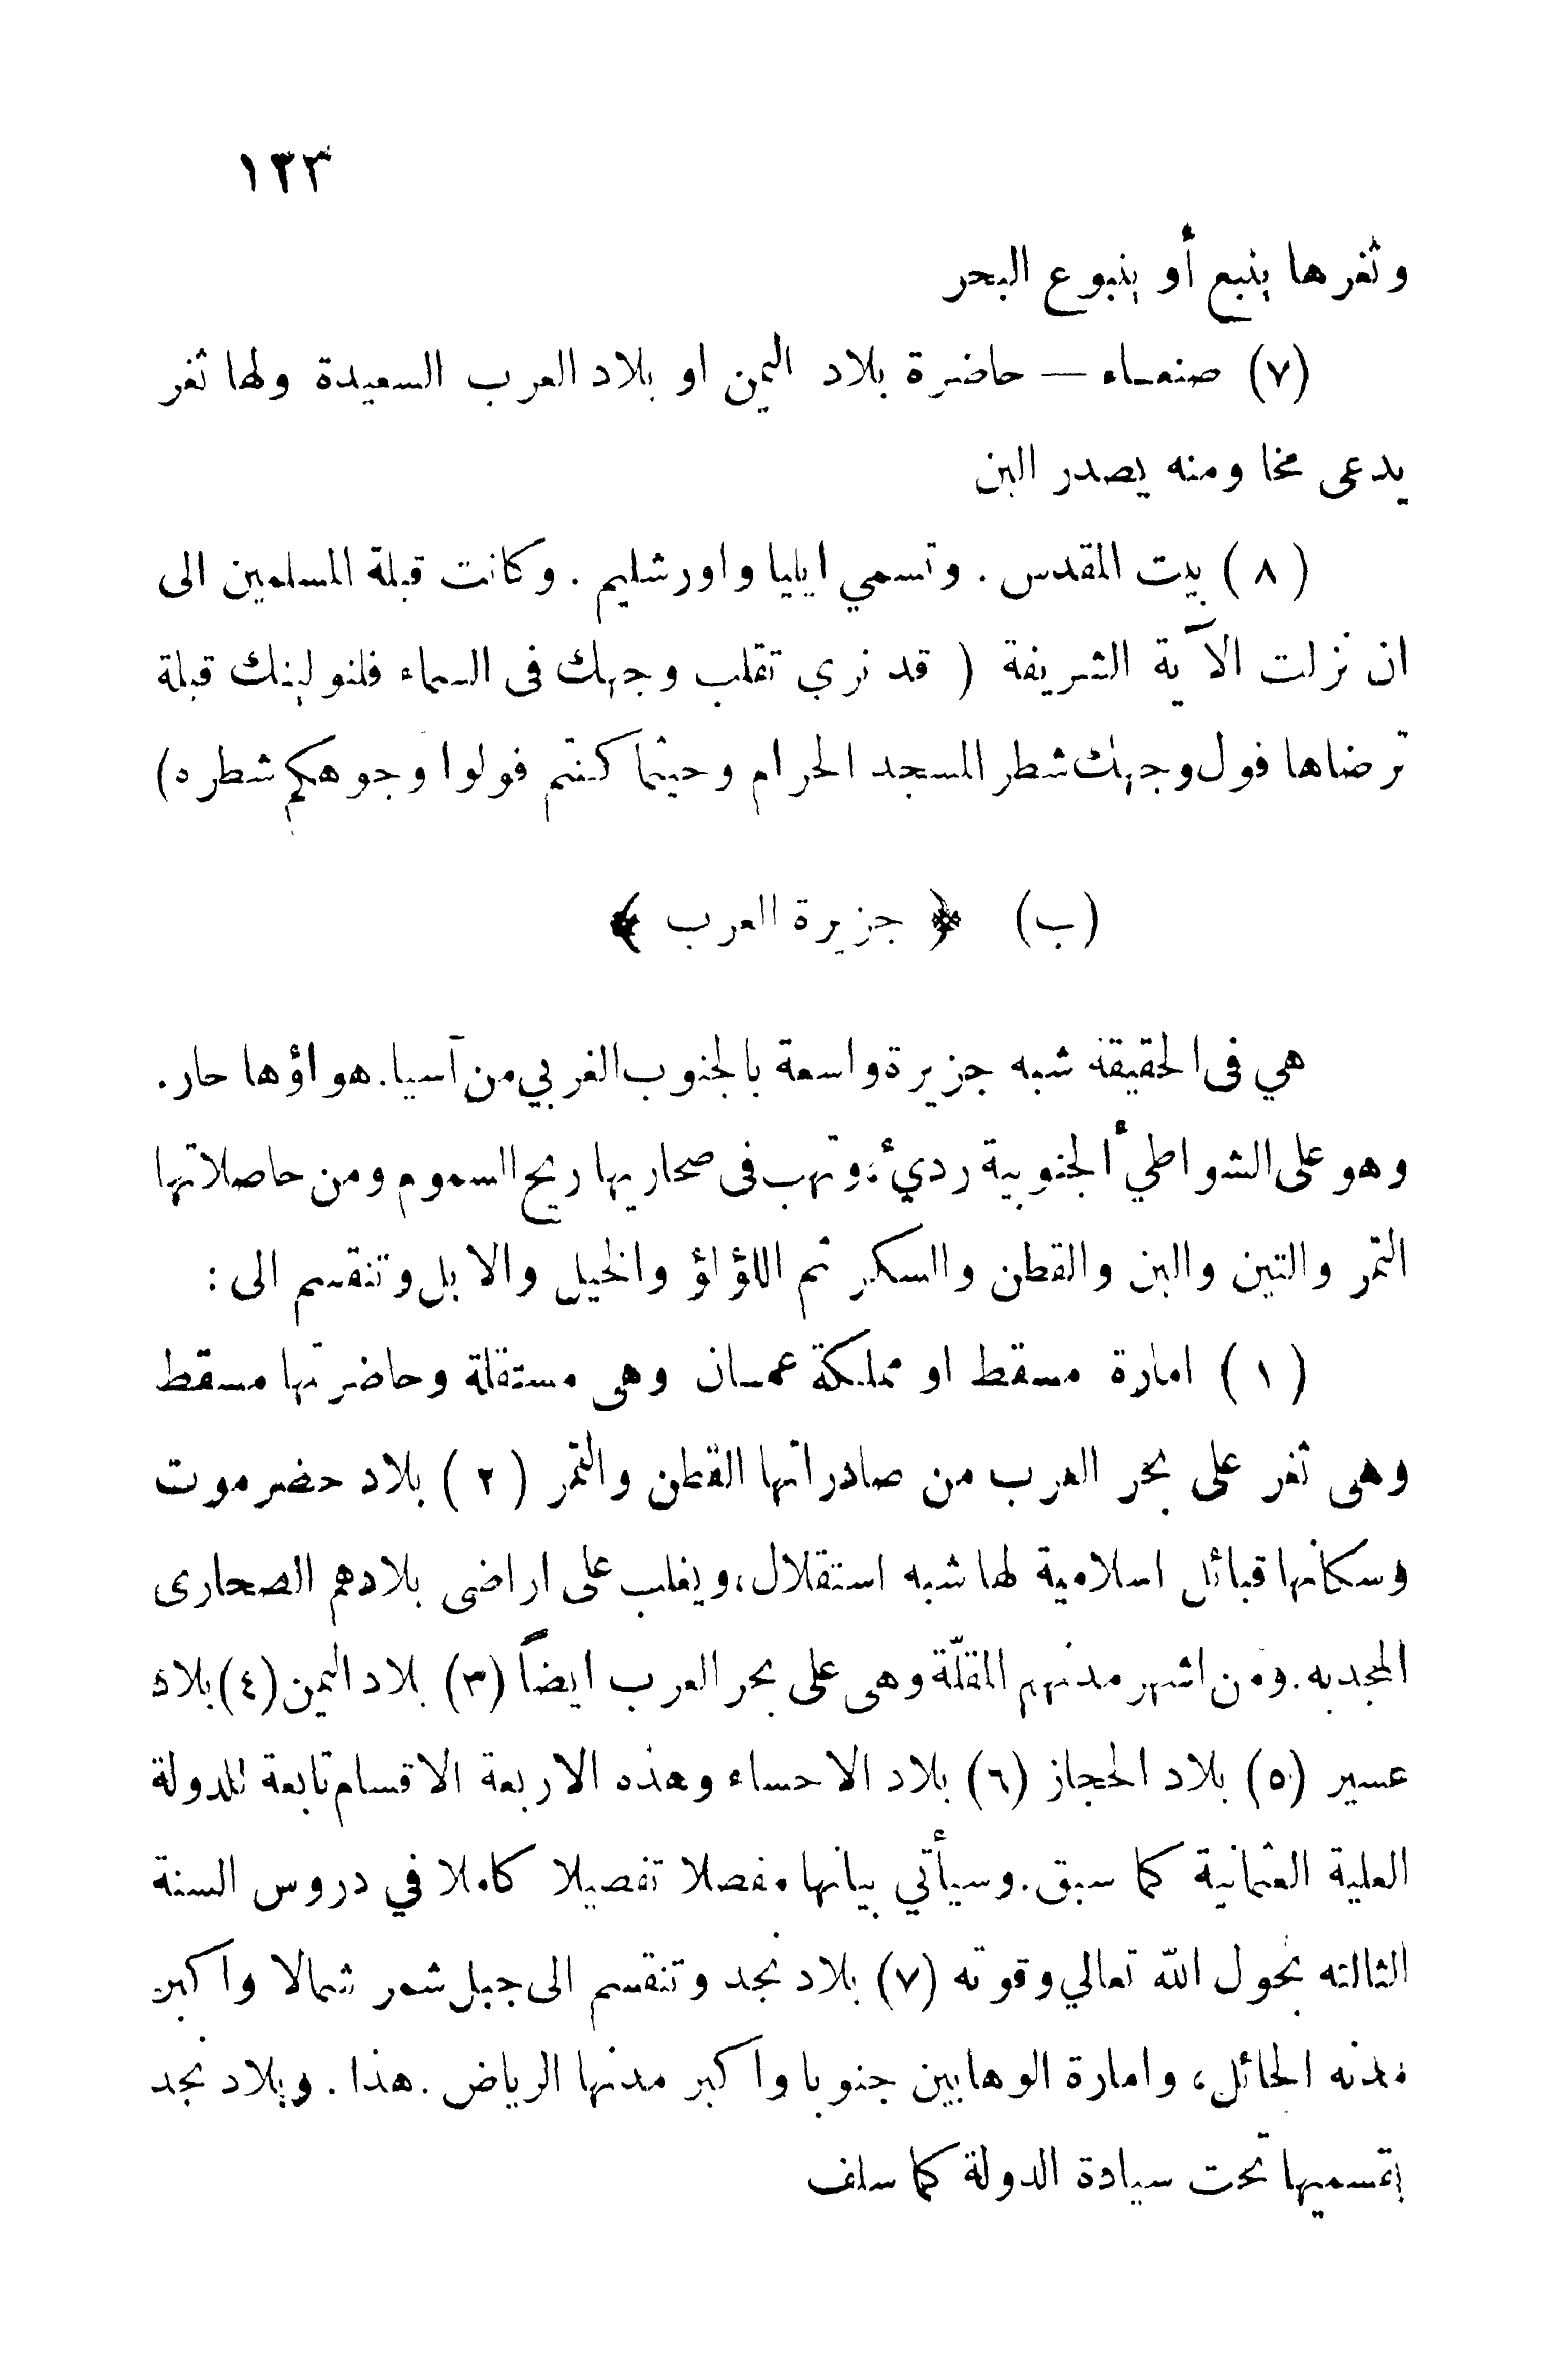 ١٣٣
وثغرها ينبع أو ينبوع البحر
(٧) صنعاء — حاضرة بلاد اليمن او بلاد العرب السعيدة ولها ثغر
يدعى مخا ومنه يصدر البن
(٨) بيت المقدس . وتسمي ايليا واورشليم . وكانت قبلة المسلمين الى
ان نزلت الآية الشريفة ( قد نري تقلب وجهك فى السماء فلنولينك قبلة
ترضاها فول وجهك شطر المسجد الحرام وحيثما كنتم فولوا وجوهكم شطره)
(ب) ﴿ جزيرة العرب ﴾
هي فى الحقيقة شبه جزيرة واسعة بالجنوب الغربي من آسيا. هواؤها حار.
وهو على الشواطيأ الجنوبية رديء، وتهب فى صحاريها ريح السموم ومن حاصلاتها
التمر والتين والبن والقطن والسكر ثم اللؤلؤ والخيل والابل وتنقسم الى :
(١) امارة مسقط او مملكة عمان وهى مستقلة وحاضرتها مسقط
وهى ثغر على بحر العرب من صادراتها القطن والتمر (٢) بلاد حضرموت
وسكانها قبائل اسلامية لها شبه استقلال، ويغلب على اراضى بلادهم الصحارى
المجدبه. ومن اشهر مدنهم المقلّة وهى على بحر العرب ايضاً (٣) بلاد اليمن (٤) بلاد
عسير (٥) بلاد الحجاز (٦) بلاد الاحساء وهذه الاربعة الاقسام تابعة للدولة
العلية العثمانية كما سبق. وسيأتي بيانها مفصلا تفصيلا كاملا في دروس السنة
الثالثه بحول الله تعالي وقوته (٧) بلاد نجد وتنقسم الى جبل شمر شمالا واكبر
مدنه الحائل، وامارة الوهابيين جنوبا واكبر مدنها الرياض . هذا . وبلاد نجد
بقسميها تحت سيادة الدولة كما سلف